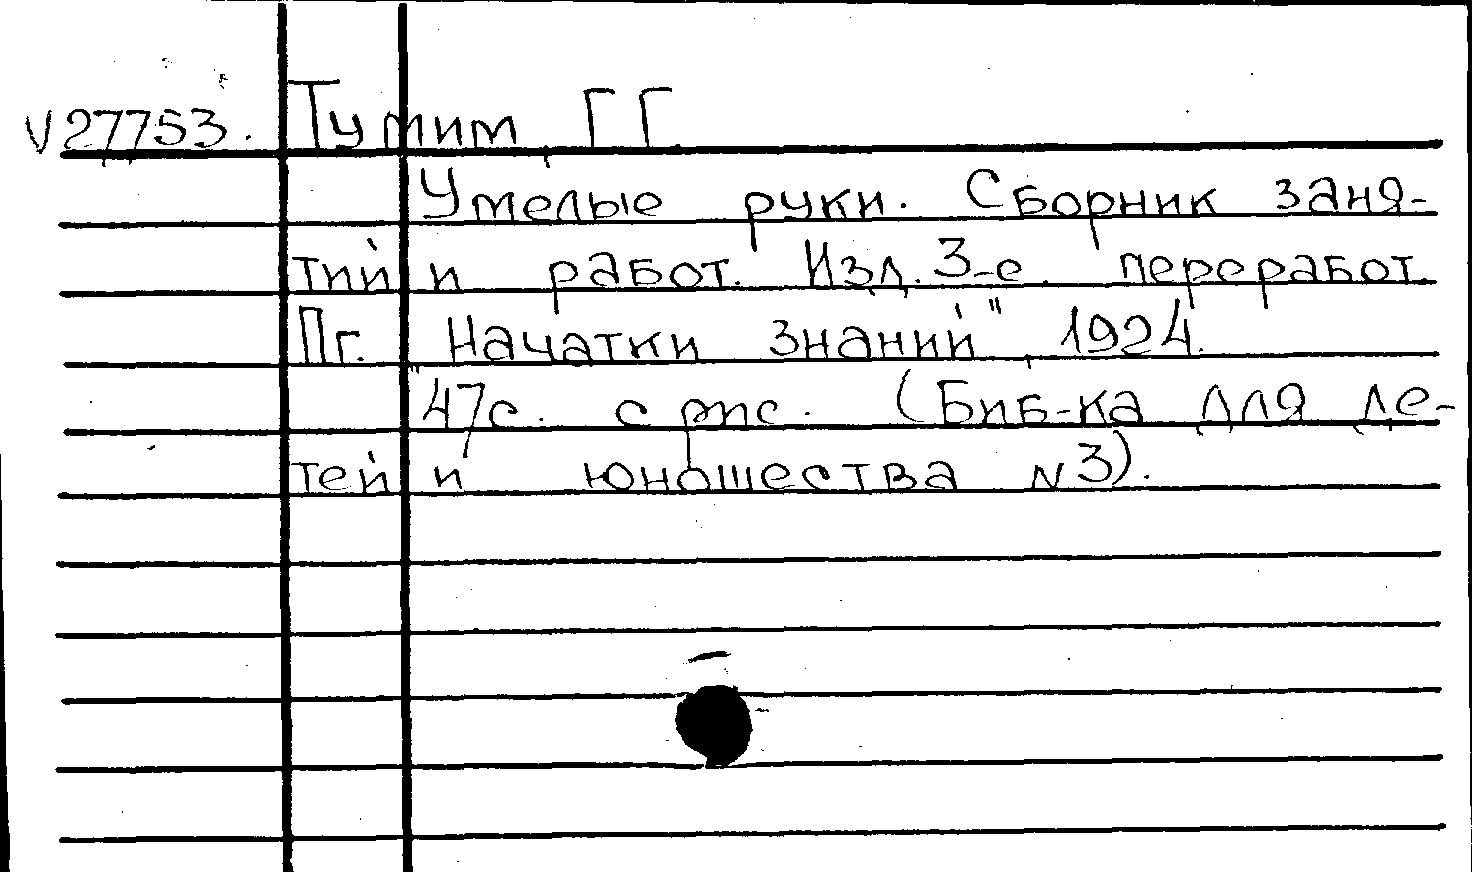 V27753. Тумим, Г.Г.
Умелые руки. Сборник заня-
тий и работ. Изд. 3-е. переработ.
Пг. "Начатки знаний", 1924.
47с. с рис. (Биб-ка для де-
тей и юношества N3).